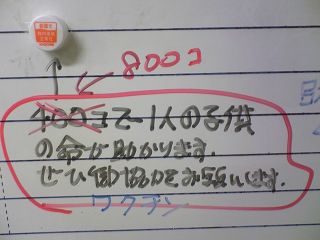 800コ
400コで1人の子供
の命が助かります.
ぜひ御協力をお願いします.
ワクチン